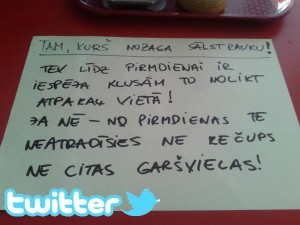 TAM, KURŠ NOZAGA SĀLSTRAUKU!
TEV LĪDZ PIRMDIENAI IR
IESPĒJA KLUSĀM TO NOLIKT
ATPAKAĻ VIETĀ!
JA NĒ - NO PIRMDIENAS TE
NEATRADĪSIES NE KEČUPS
NE CITAS GARŠVIELAS!
twitter